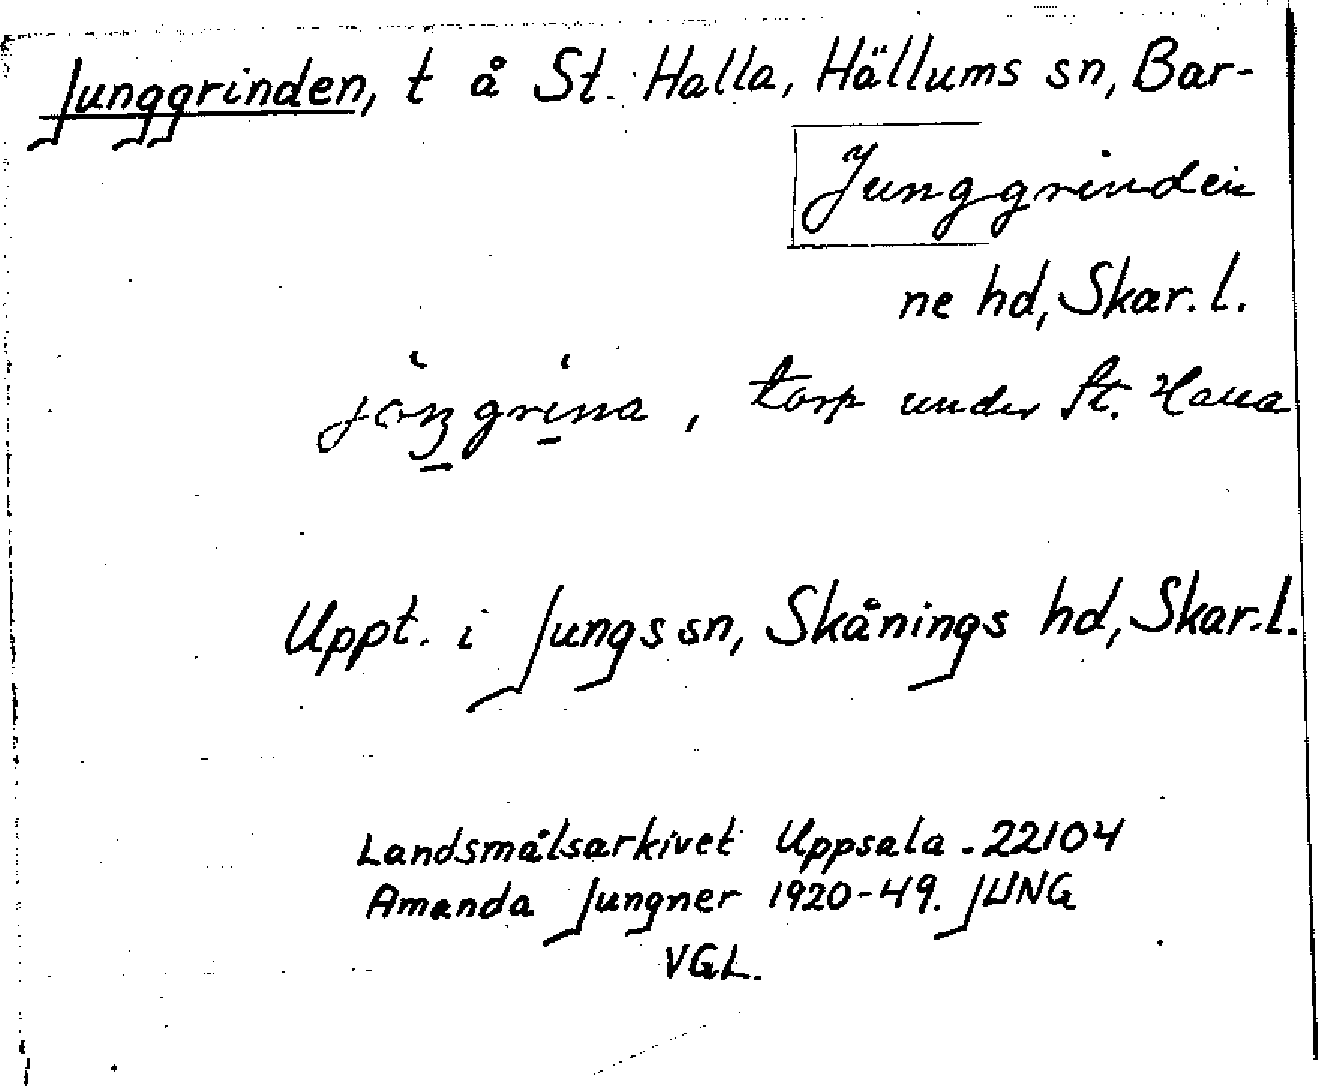 Junggrinden, t å St. Halla, Hällums sn, Bar-
Junggrinden
ne hd, Skar. l.
, torp under St. Halla
Uppt. i Jungs sn, Skånings hd, Skar. l.
Landsmålsarkivet Uppsala. 22104
Amanda Jungner 1920-49. JUNG
VGL.